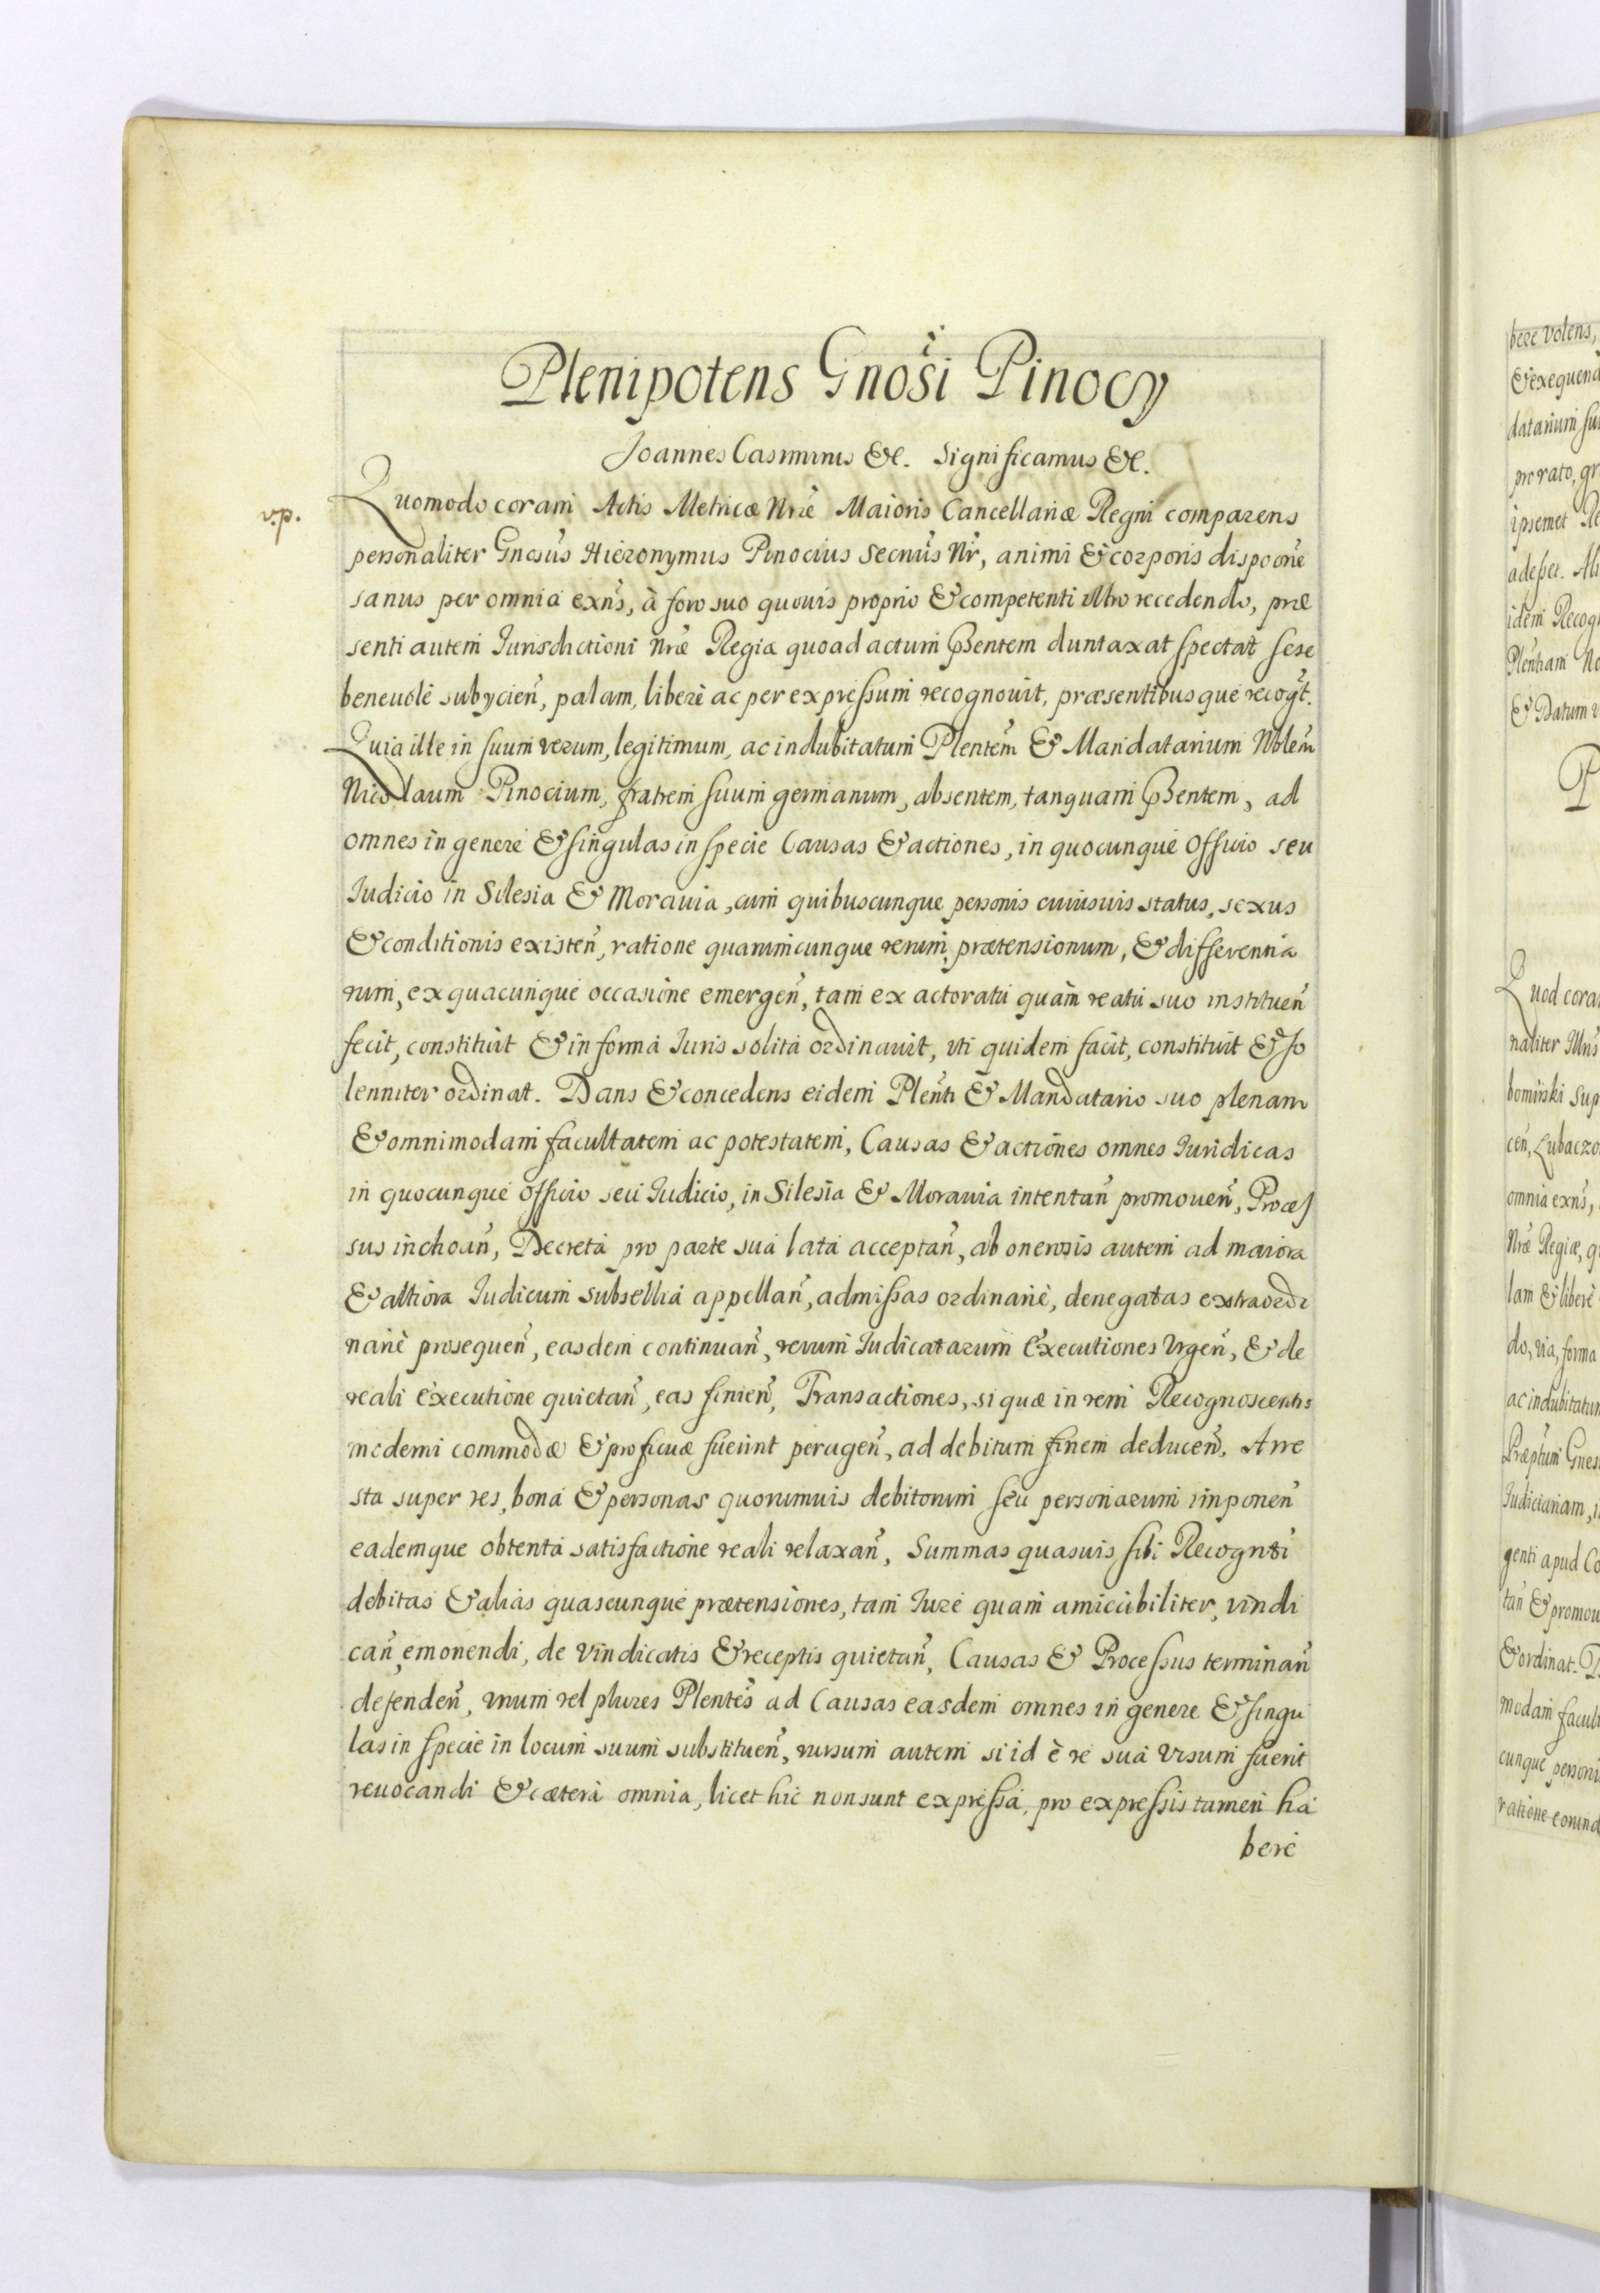 Plenipotens Gnosi Pinocy
Joannes Casimirus &c. Significamus &c.
v.p.
Quomodo coram Actis Metricæ Nræ Maioris Cancellariæ Regni comparens
personaliter Gnosus Hieronymus Pinocius Secrius Nr, animi & corporis dispoone
sanus per omnia exns, à foro suo quouis proprio & competenti ultro recedendo, præ
senti autem Jurisdictioni Nræ Regiæ quoad actum pntem duntaxat spectat sese
beneuolè subycien, palam, liberè ac per expressum recognouit, præsentibusque recogt.
Quia ille in suum verum, legitimum, ac indubitatum Plentem & Mandatarium Nblem
Nicolaum Pinocium, fratrem suum germanum, absentem, tanquam pntem, ad
omnes in genere & singulas in specie Causas & actiones, in quocunque Officio seu
Judicio in Silesia & Morauia, cum quibuscunque personis cuiusuis status, sexus
& conditionis existen, ratione quarumcunque rerum, prætensionum, & differentia
rum, ex quacunque occasione emergen, tam ex actoratu quàm reatu suo instituen
fecit, constituit & in forma Juris solita ordinauit, vti quidem facit, constituit & so
lenniter ordinat. Dans & concedens eidem Plenti & Mandatario suo plenam
& omnimodam facultatem ac potestatem, Causas & actiones omnes Juridicas
in quocunque officio seu Judicio, in Silesia & Morauia intentan promouen, Proces
sus inchoan, Decreta pro parte sua lata acceptan, ab onerosis autem ad maiora
& altiora Judicum subsellia appellan, admissas ordinariè, denegatas extraordi
nariè prosequen, easdem continuan, rerum Judicatarum Executiones Vrgen, & de
reali executione quietan, eas finien, Transactiones, si quæ in rem Recognoscentis
medemi commodæ & proficuæ fuerint peragen, ad debitum finem deducen, Arre
sta super res, bona & personas quorumuis debitorum seu personarum imponen
eademque obtenta satisfactione reali relaxan, Summas quasuis sibi Recognti
debitas & alias quascunque prætensiones, tam Jure quam amicabiliter, vindi
can, emonendi, de vindicatis & receptis quietan, Causas & Processus terminan
defenden, vnum vel plures Plentes ad Causas easdem omnes in genere & singu
las in specie in locum suum substituen, rursum autem si id è re sua visum fuerit
reuocandi & cætera omnia, licet hic non sunt expressa, pro expressis tamen ha
bere
bere volens,
datarium
pro rato,
ipsemet
adesset.
idem
Plenam
& Datum
P
Quod
naliter
bomirski
cen, Lubaczo
omnia exns,
Nræ Regiæ,
lam & liberè
do, via, forma
ac indubitatum
Judiciariam,
genti apud
tan & promou
& ordinat.
modam
cunque
ratione